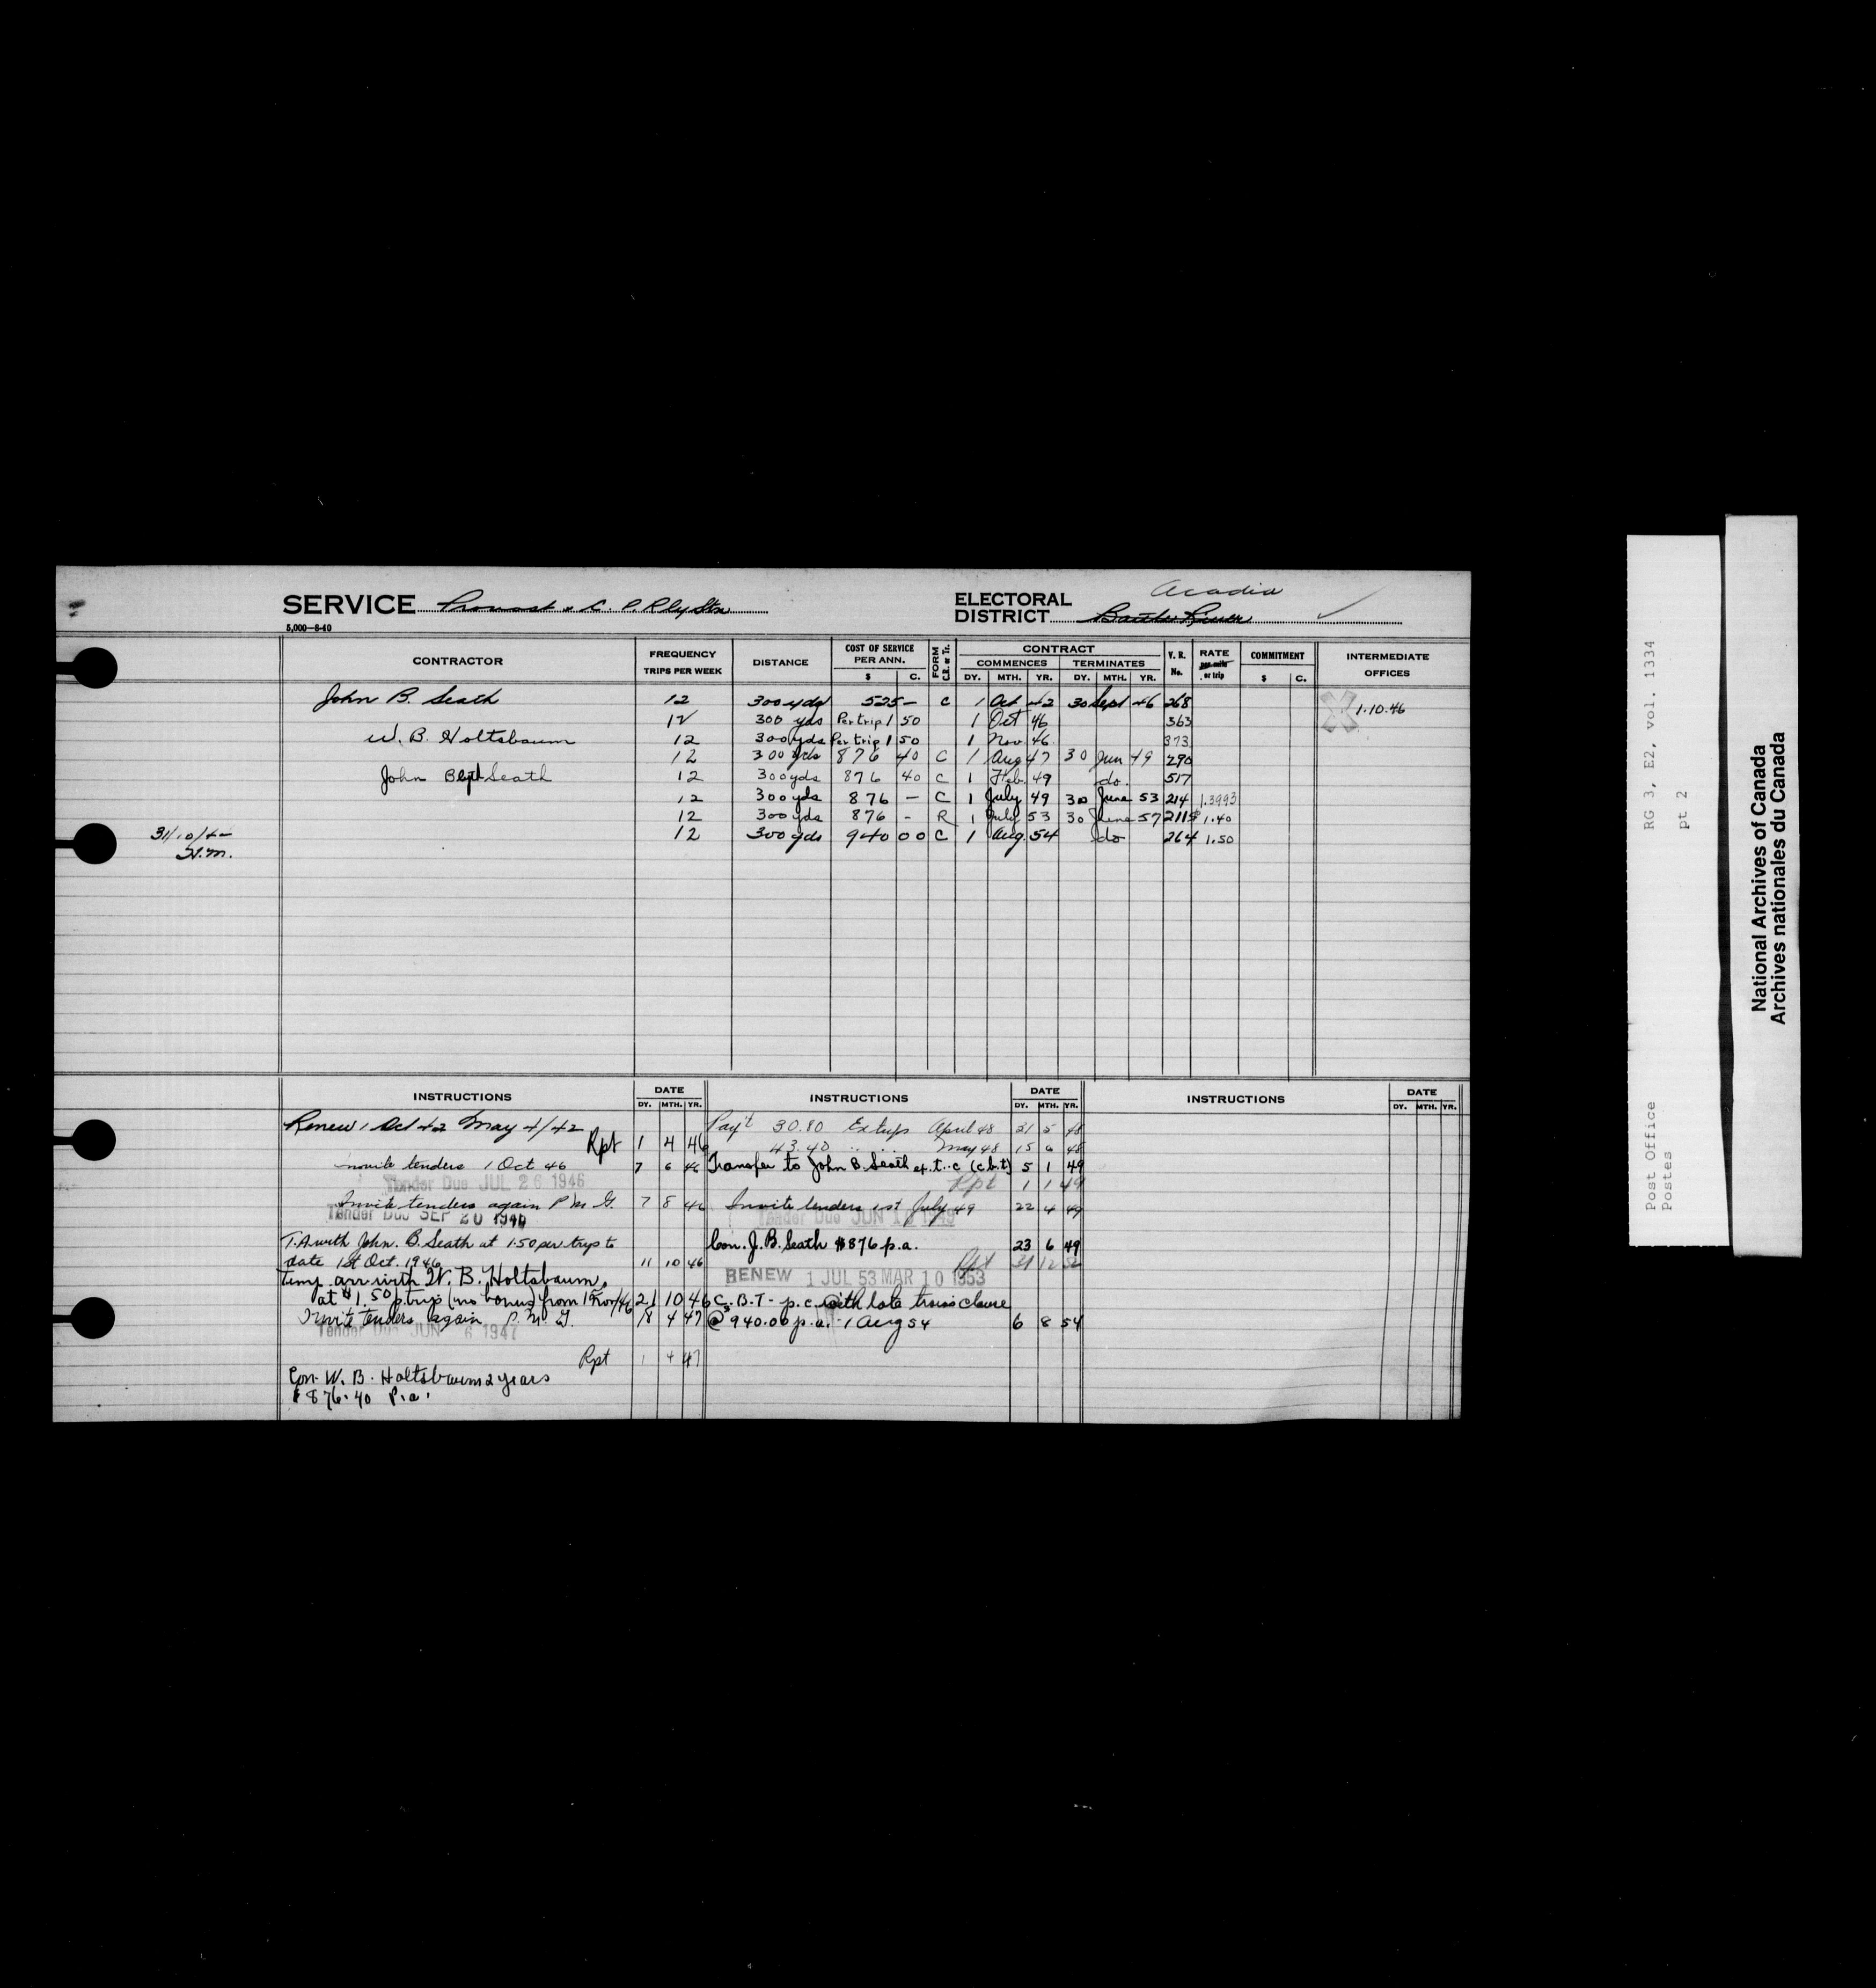 Acadia
SERVICE Provost & C. P. Rly Stn
ELECTORAL DISTRICT Battle River
5,000-8-40
CONTRACTOR FREQUENCY TRIPS PER WEEK DISTANCE COST OF SERVICE PER ANN. $ C. FORM C.R. or Tr. CONTRACT COMMENCES DY. MTH. YR. TERMINATES DY. MTH. YR. V. R. No. RATE per mile or trip COMMITMENT $ C. INTERMEDIATE OFFICES
John B. Seath 12 300 yds 525 - C 1 Oct 42 30 Sept 46 268
1.10.46
12 300 yds Per trip 1 50 1 Oct 46 363
W. B. Holtsbaum 12 300 yds Per trip 1 50 1 Nov. 46 373
12 300 yds 876 40 C 1 Aug 47 30 Jun 49 290
John Blyth Seath 12 300 yds 876 40 C 1 Feb. 49 do. 517
12 300 yds 876 - C 1 July 49 30 June 53 214 1.3993
12 300 yds 876 - R 1 July 53 30 June 57 2115 1.40
31/10/42 12 300 yds 940 00 C 1 Aug. 54 do 264 1.50
H.M.
INSTRUCTIONS DATE DY. MTH. YR. INSTRUCTIONS DATE DY. MTH. YR. INSTRUCTIONS DATE DY. MTH. YR.
Renew 1 Oct 42 May 4/42
Rpt 1 4 46
Invite tenders 1 Oct 46 7 6 46
Tender Due JUL 26 1946
Invite tenders again P M G. 7 8 46
Tender Due SEP 20 1946
T.A with John. B. Seath at 1.50 per trip to
date 1st Oct. 1946 11 10 46
Temp arr with W. B. Holtsbaum,
at $1.50 p. trip (no bonus) from 1st Nov/46 21 10 46
Invite tenders again P. M. G. 18 4 47
Tender Due JUN 6 1947
Rpt 1 4 47
Con. W. B. Holtsbaum 2 years
$876.40 P.a.
Pay't 30.80 Ex trips April 48 31 5 48
43.40 .. .. May 48 15 6 48
Transfer to John B. Seath ex. t. c (c.b.t) 5 1 49
Rpt 1 1 49
Invite tenders 1st July 49 22 4 49
Tender Due JUN 10 1949
Con. J. B. Seath $876 p.a. 23 6 49
Rpt 31 12 52
RENEW 1 JUL 53 MAR 10 1953
C. B. T - p. c. with late trains clause
@ $940.00 p.a. - 1 Aug 54 6 8 54
Post Office RG 3, E2, vol. 1334
Postes pt 2
National Archives of Canada
Archives nationales du Canada